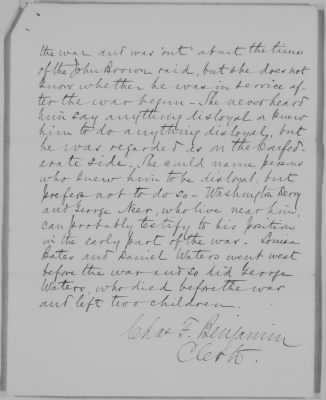 the war and was "out" about the time
of the John Brown raid, but she does not
know whether he was in service af-
ter the war begun - She never heard
him say anything disloyal or knew
him to do anything disloyal, but
he was regarded as on the Confed-
erate side. She could name persons
who knew him to be disloyal, but
prefers not to do so - Washington Derry
and George Neer, who live near him,
can probably testify to his position
in the early part of the war. Louisa
Bates and Daniel Waters went west
before the war and so did George
Waters, who died before the war
and left two children.
Chas F. Benjamin
Clerk.